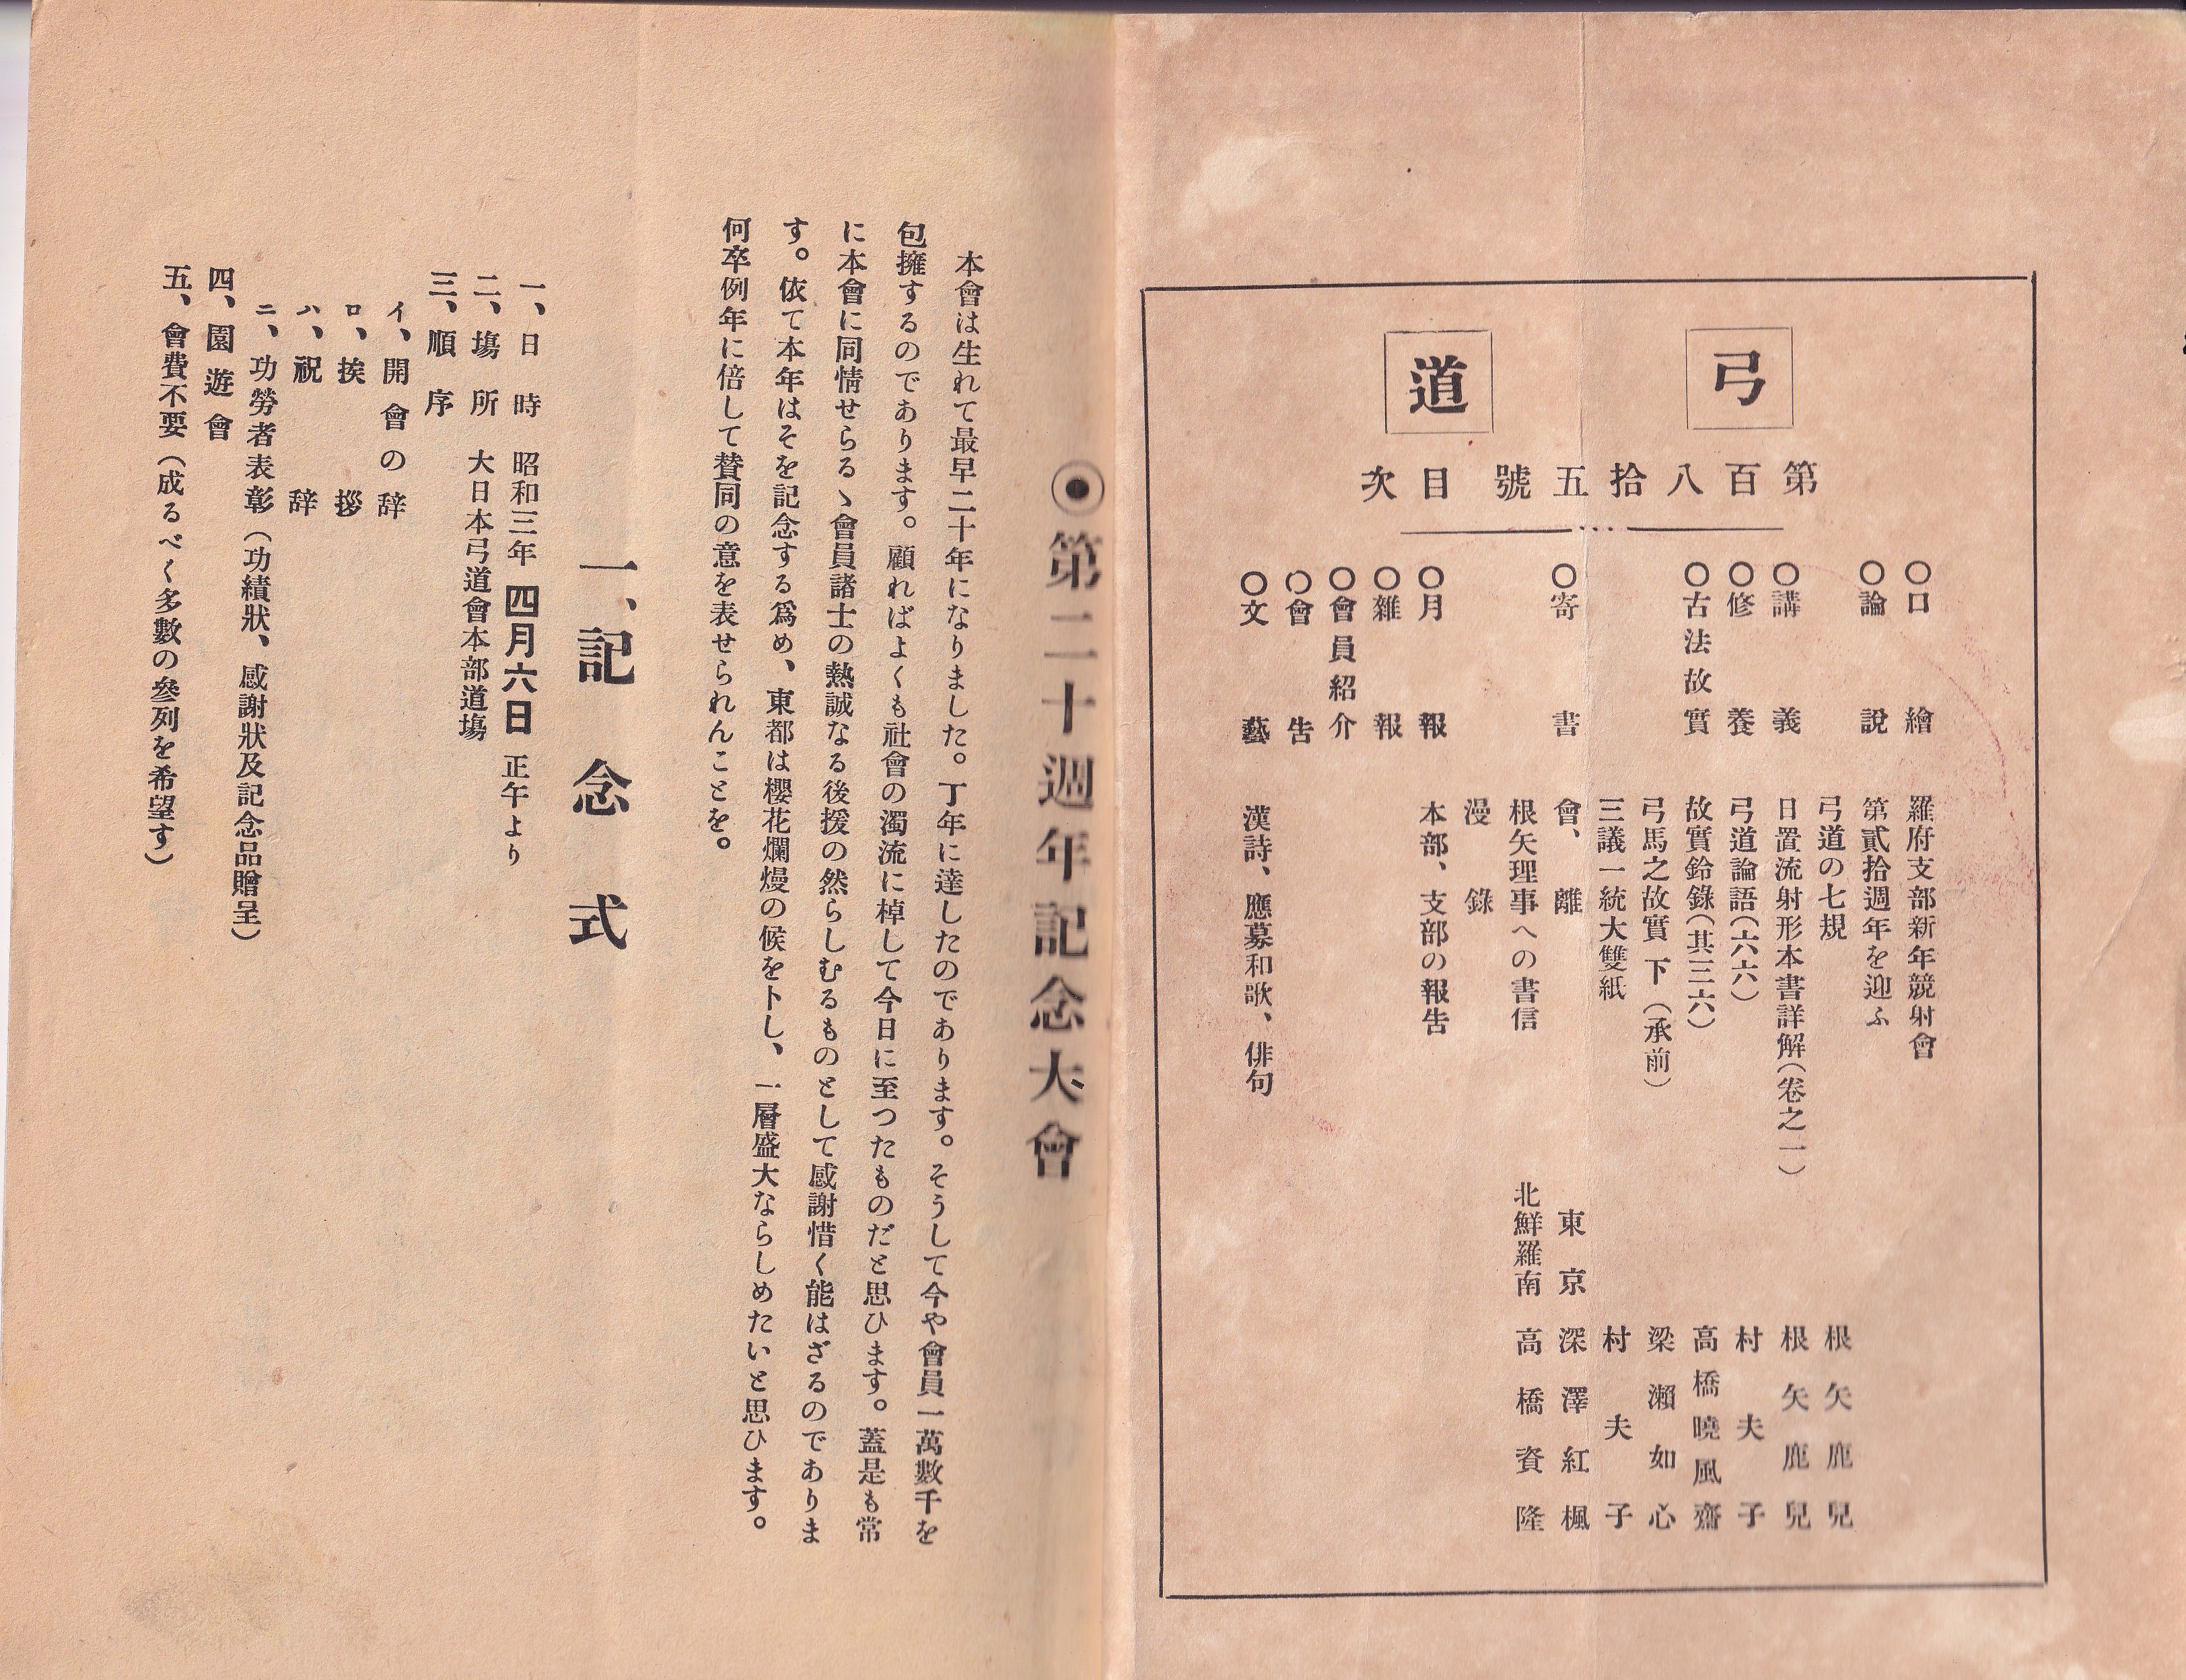 弓道
第百八拾五號目次
〇口繪 羅府支部新年競射會
〇論說 第貳拾週年を迎ふ
弓道の七規 根矢鹿兒
〇講義 日置流射形本書詳解(卷之一) 根矢鹿兒
〇修養 弓道論語(六六) 村夫子
〇古法故實 故實鈴錄(其三六) 高橋曉風齋
弓馬之故實 下 (承前) 梁瀬如心
三議一統大雙紙 村夫子
〇寄書 會、離 東京 深澤紅楓
根矢理事への書信 北鮮羅南 高橋資隆
漫錄
〇月報 本部、支部の報告
〇雜報
〇會員紹介
〇會告
〇文藝 漢詩、應募和歌、俳句
◉第二十週年記念大會
本會は生れて最早二十年になりました。丁年に達したのであります。そうして今や會員一萬數千を
包擁するのであります。顧ればよくも社會の濁流に棹して今日に至つたものだと思ひます。蓋是も常
に本會に同情せらるゝ會員諸士の熱誠なる後援の然らしむるものとして感謝惜く能はざるのでありま
す。依て本年はそを記念する爲め、東都は櫻花爛熳の候を卜し、一層盛大ならしめたいと思ひます。
何卒例年に倍して賛同の意を表せられんことを。
一、記念式
一、日時 昭和三年 四月六日 正午より
二、塲所 大日本弓道會本部道塲
三、順序
イ、開會の辞
ロ、挨拶
ハ、祝辞
ニ、功勞者表彰(功績狀、感謝狀及記念品贈呈)
四、園遊會
五、會費不要(成るべく多數の參列を希望す)